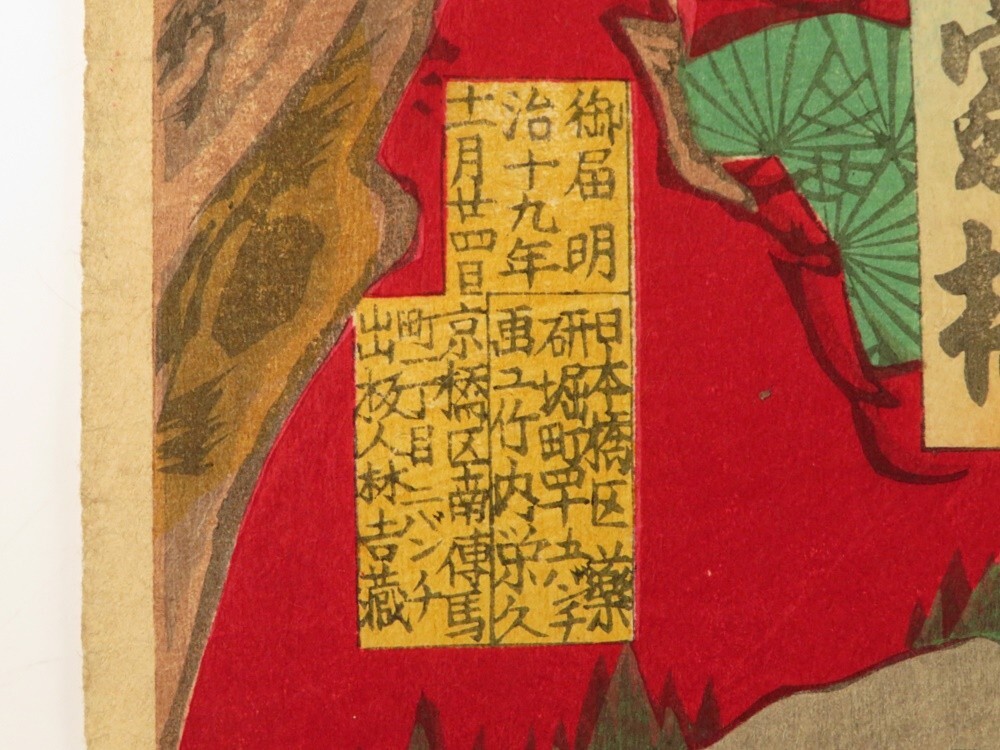 御届 明
治十九年
十一月廿四日
日本橋区 薬
研堀町四十バンチ
画工竹内栄久
京橋区南傳馬
町一丁目二バンチ
出板人林吉藏